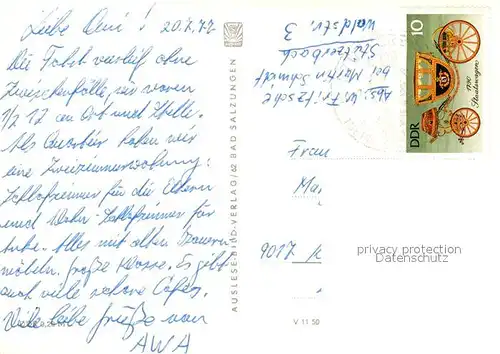 Liebe Omi! 20.7.77
Die Fahrt verlief ohne
Zwischenfälle, wir waren
1/2 12 an Ort und Stelle.
Als Quartier haben wir
eine Zweizimmerwohnung:
Schlafzimmer für die Eltern
und Wohn-Schlafzimmer für
Alles mit alten Bauern
möbeln. Große Klasse. Es gibt
auch viele schöne Cafés.
Viele liebe Grüße von
AWA
AUSLESE-BILD-VERLAG/62 BAD SALZUNGEN
V 11 50
Abs: W. Fritzsche
bei Martin Schmidt
Stützerbach
Waldstr. 3
Frau
9017
10
DDR
1790
privacy protection
Datenschutz